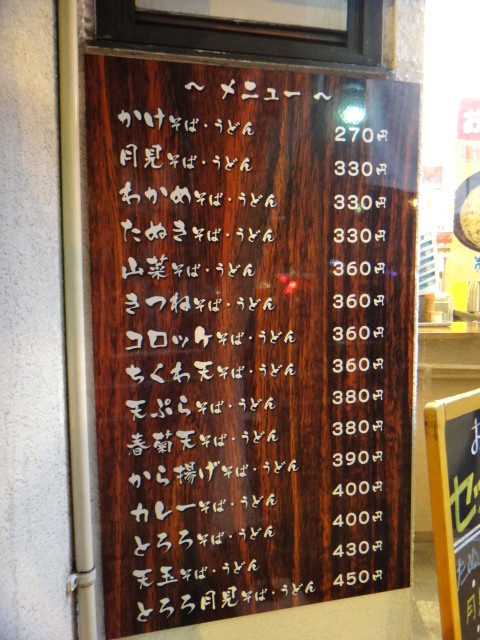 ～ メニュー ～
かけそば・うどん 270円
月見そば・うどん 330円
わかめそば・うどん 330円
たぬきそば・うどん 330円
山菜そば・うどん 360円
きつねそば・うどん 360円
コロッケそば・うどん 360円
ちくわ天そば・うどん 360円
天ぷらそば・うどん 380円
春菊天そば・うどん 380円
から揚げそば・うどん 390円
カレーそば・うどん 400円
とろろそば・うどん 400円
天玉そば・うどん 430円
とろろ月見そば・うどん 450円
お
セッ
たぬ
月